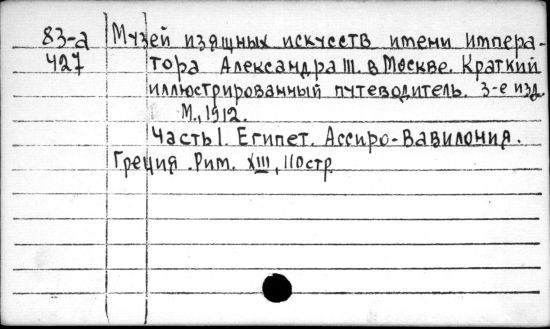 83-а Музей изящных искусств имени импера-
427 тора Александра III. в Москве. Краткий
иллюстрированный путеводитель. 3-е изд.
М., 1912.
Часть I. Египет. Ассиро-Вавилония.
Греция. Рим. XIII, 110стр.